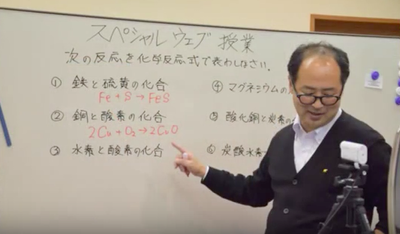 スペシャル ウェブ 授業
次の反応を化学反応式で表わしなさい.
① 鉄と硫黄の化合
Fe + S → FeS
② 銅と酸素の化合
2Cu + O₂ → 2CuO
③ 水素と酸素の化合
④ マグネシウムの
⑤ 酸化銅と炭素の
⑥ 炭酸水素